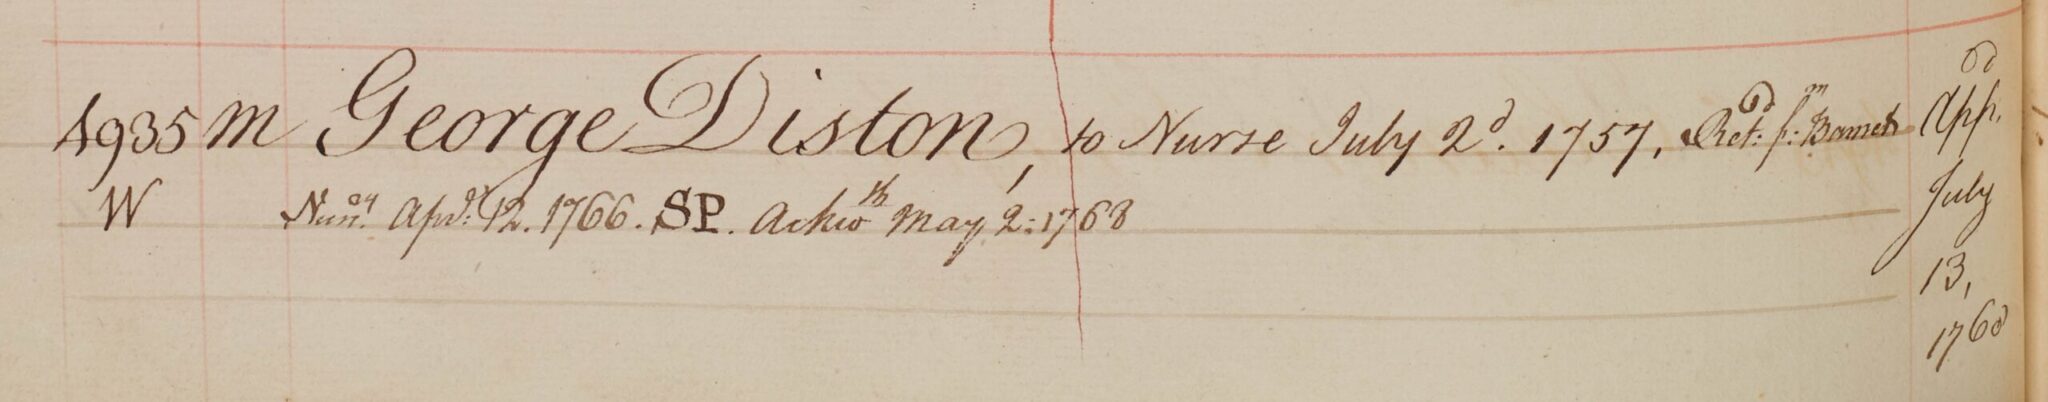 4935 m George Diston, to Nurse July 2d. 1757, Retd. fm. Barnet
W Nurry. Aprl. 12. 1766. SP. Ackwth May 2: 1768
Appd.
July
13,
1768